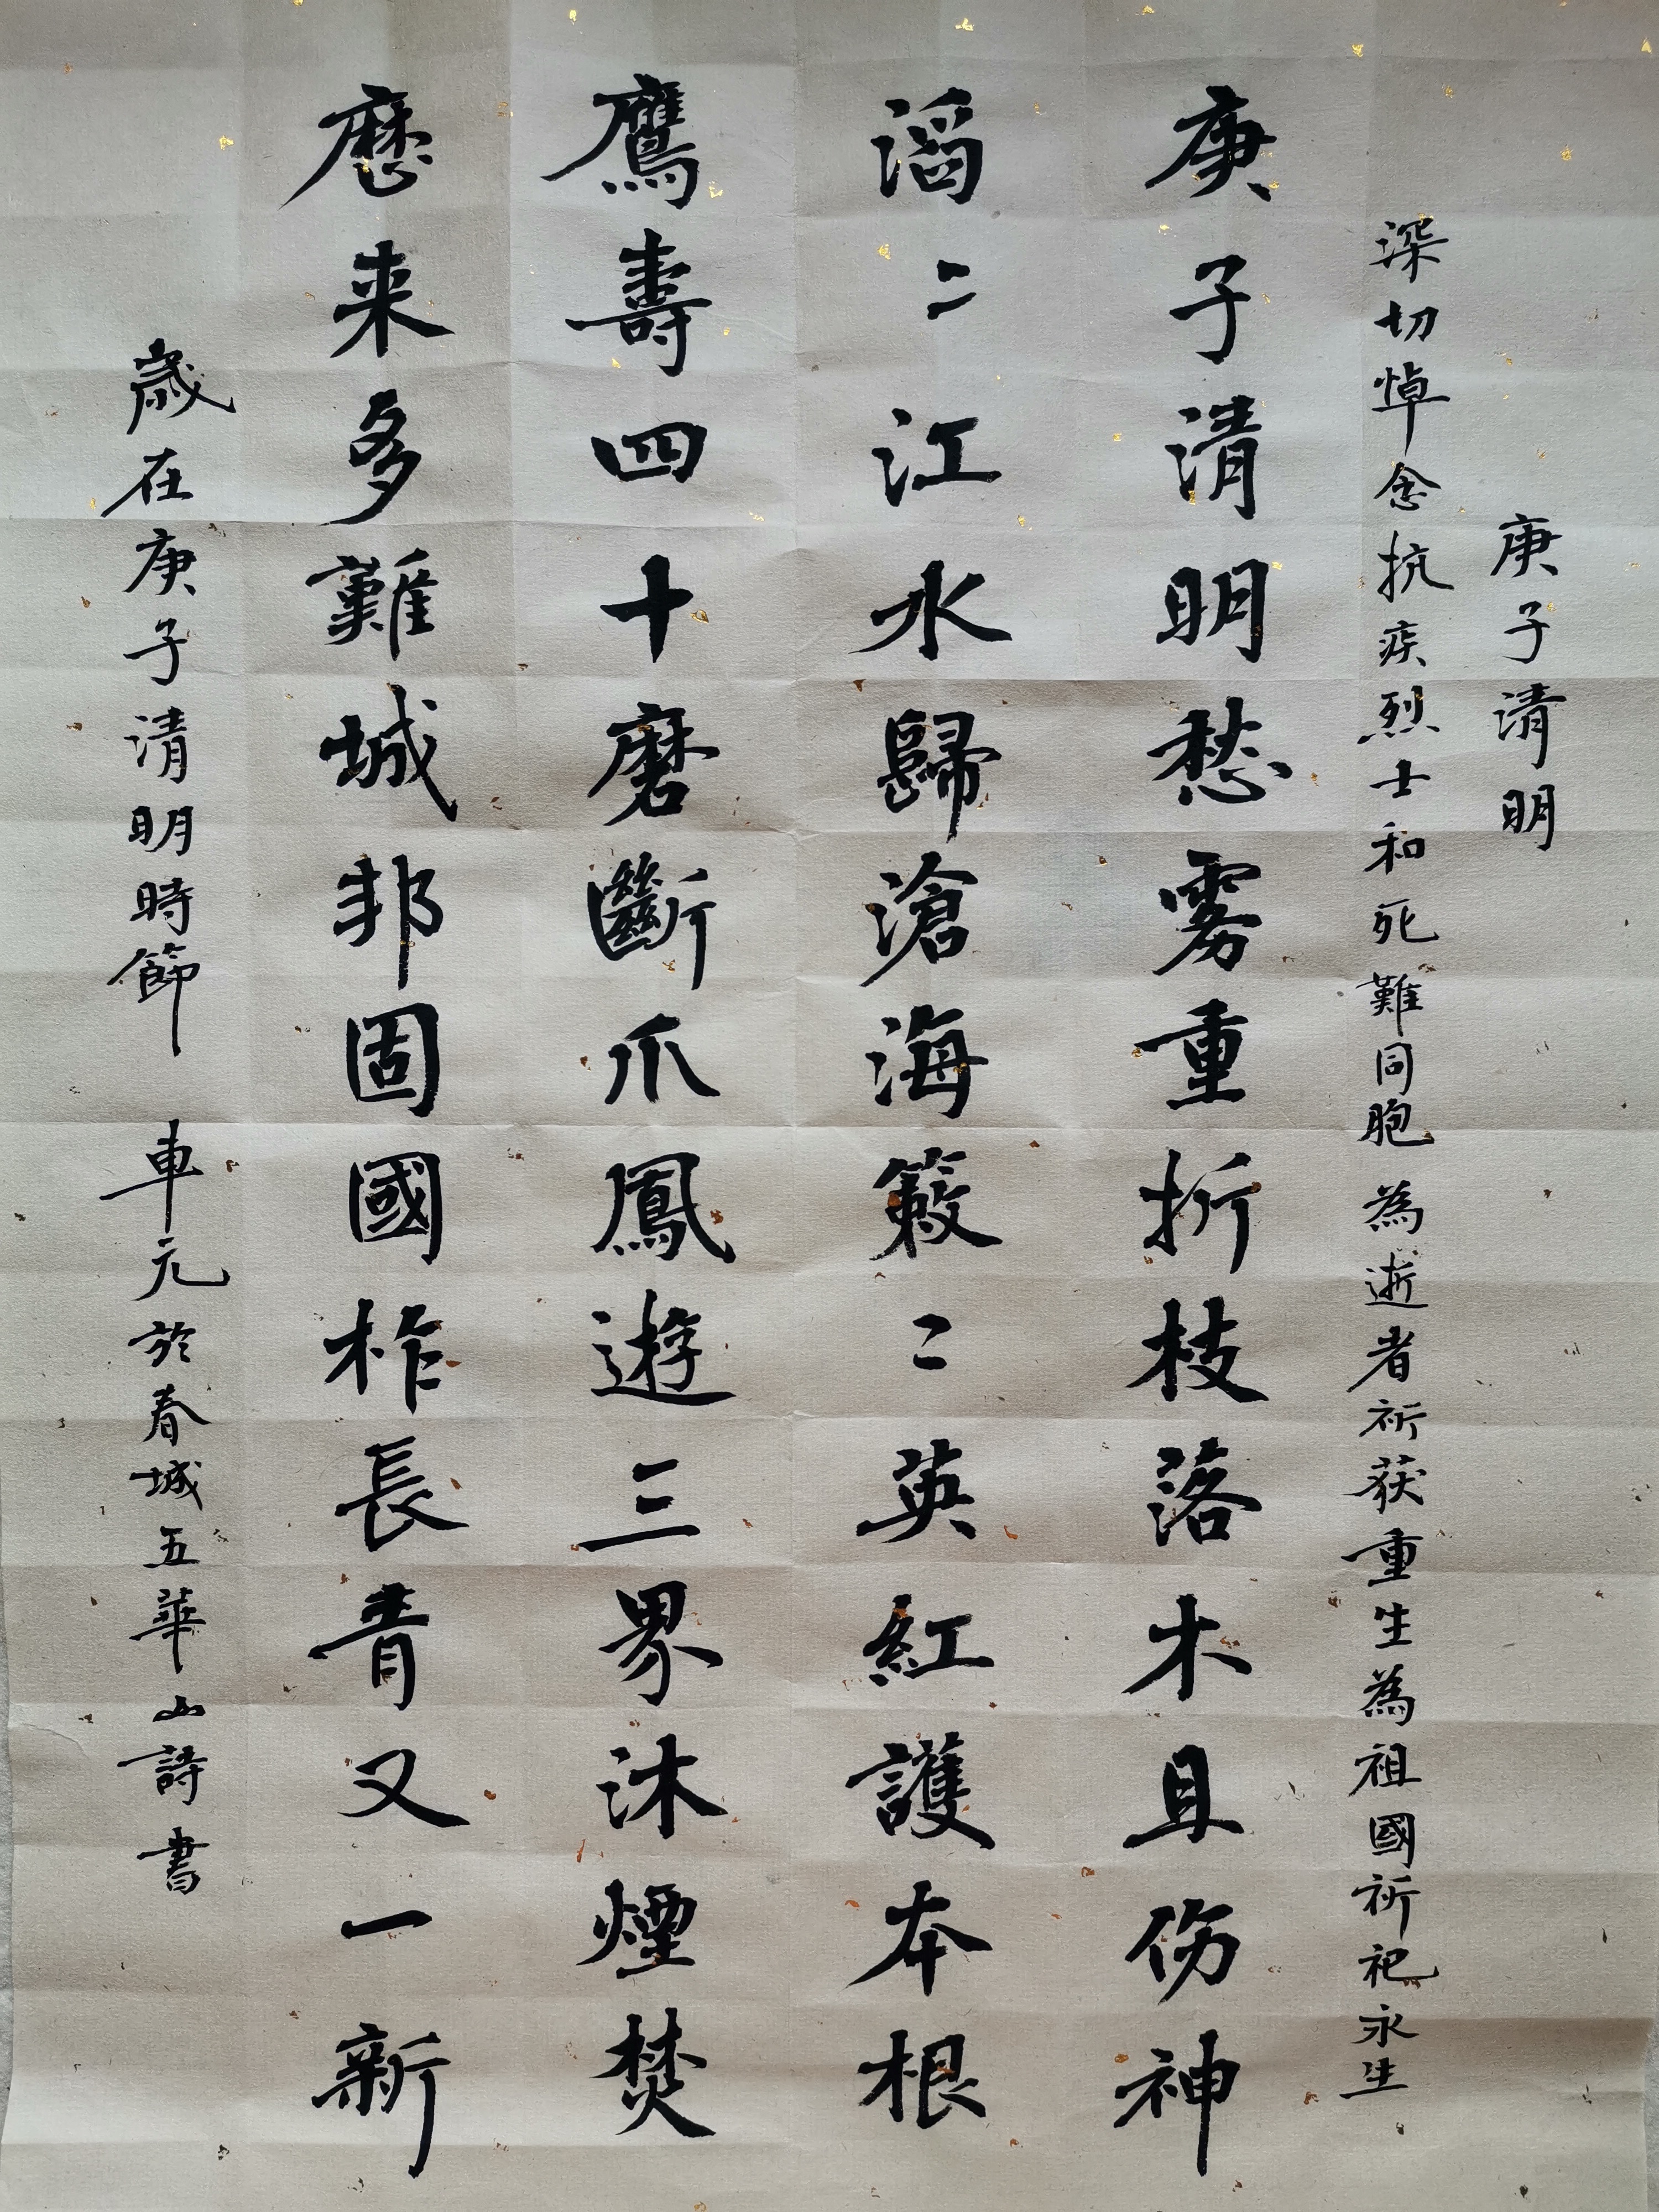 庚子清明
深切悼念抗疾烈士和死難同胞 為逝者祈获重生為祖國祈祀永生
庚子清明愁雾重折枝落木且伤神
滔〻江水歸滄海簌〻英紅護本根
鷹壽四十磨斷爪鳳遊三界沐煙焚
歷来多難城邦固國柞長青又一新
歲在庚子清明時節 車元於春城五華山詩書